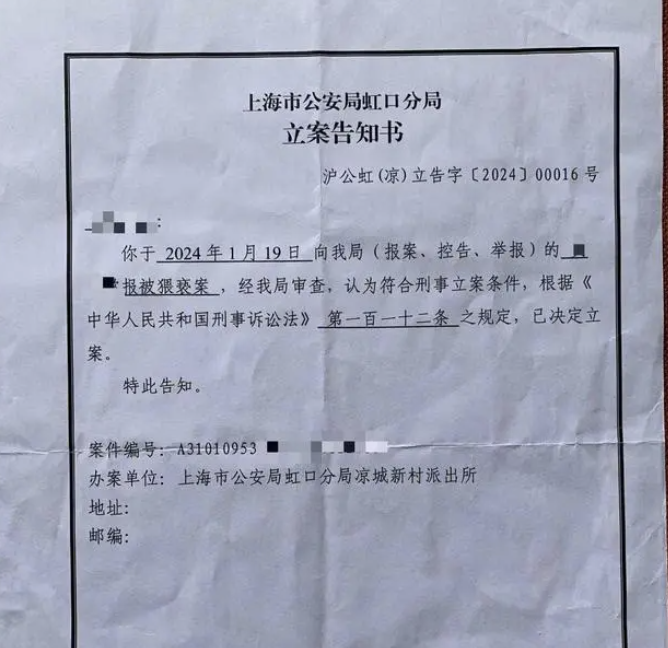 上海市公安局虹口分局
立案告知书
沪公虹(凉)立告字〔2024〕00016号
:
你于 2024年1月19日 向我局（报案、控告、举报）的
报被猥亵案，经我局审查，认为符合刑事立案条件，根据《
中华人民共和国刑事诉讼法》 第一百一十二条 之规定，已决定立
案。
特此告知。
案件编号: A31010953
办案单位: 上海市公安局虹口分局凉城新村派出所
地址:
邮编: